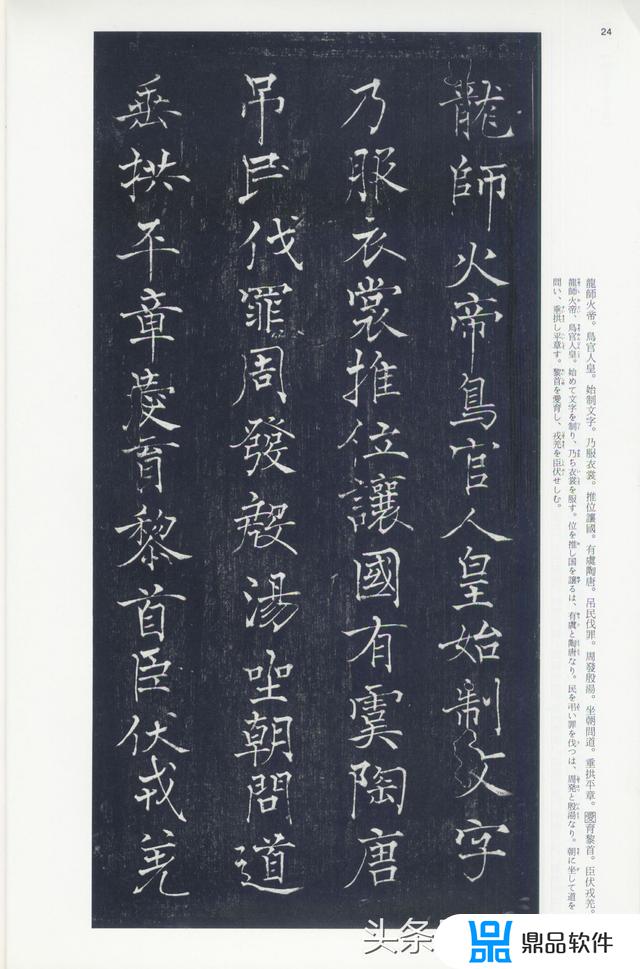 24
龍師火帝鳥官人皇始制文字
乃服衣裳推位讓國有虞陶唐
吊民伐罪周發殷湯坐朝問道
垂拱平章愛育黎首臣伏戎羌
龍師火帝。鳥官人皇。始制文字。乃服衣裳。推位讓國。有虞陶唐。吊民伐罪。周發殷湯。坐朝問道。垂拱平章。愛育黎首。臣伏戎羌。
龍師火帝、鳥官人皇。始めて文字を制り、乃ち衣裳を服す。位を推し国を讓るは、有虞と陶唐なり。民を弔い罪を伐つは、周発と殷湯なり。朝に坐して道を
問い、垂拱し平章す。黎首を愛育し、戎羌を臣伏せしむ。
头条
鼎品软件